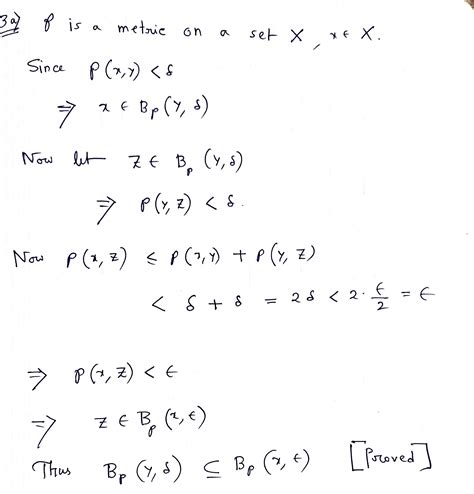 3a) ρ is a metric on a set X, x ∈ X.
Since ρ(x,y) < δ
⇒ x ∈ B_ρ(y, δ)
Now let z ∈ B_ρ(y, δ)
⇒ ρ(y, z) < δ.
Now ρ(x, z) ≤ ρ(x, y) + ρ(y, z)
< δ + δ = 2δ < 2·ϵ/2 = ϵ
⇒ ρ(x, z) < ϵ
⇒ z ∈ B_ρ(x, ϵ)
Thus B_ρ(y, δ) ⊆ B_ρ(x, ϵ) [Proved]